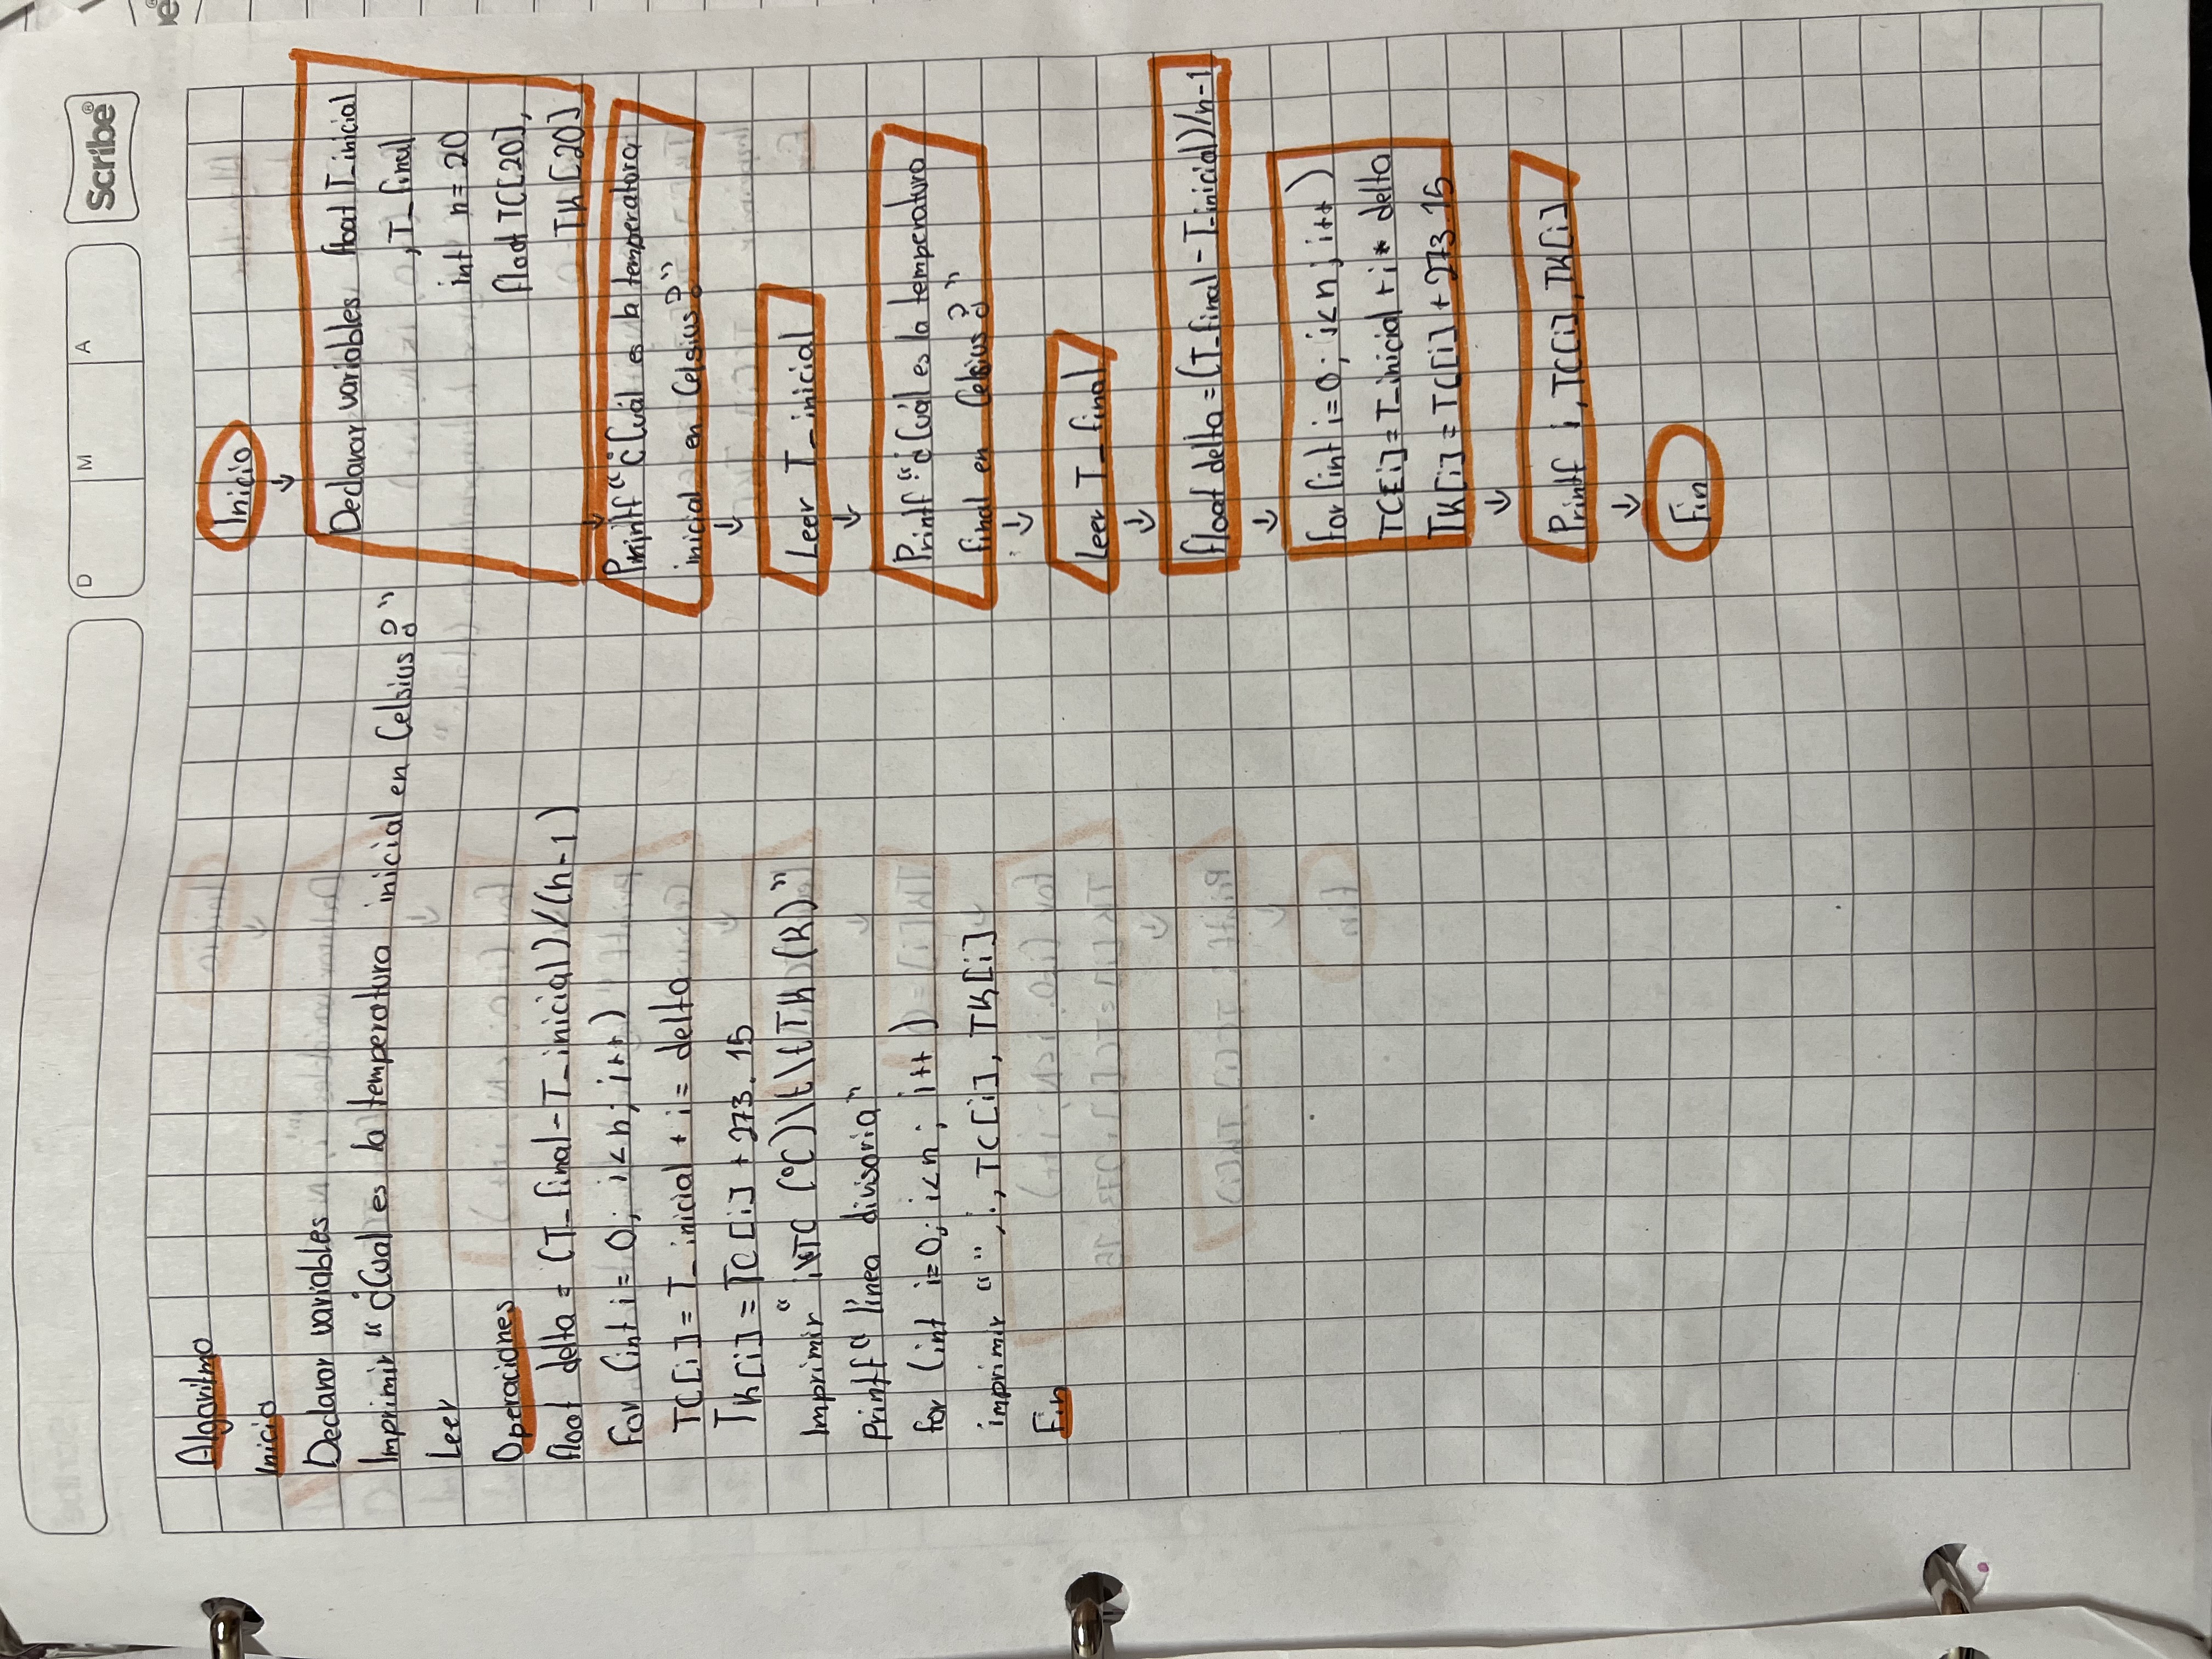 D M A
Scribe®
Algoritmo
Inicio
Declarar variables
Imprimir "¿Cual es la temperatura inicial en Celsius?"
Leer
Operaciones
float delta = (T_final-T_inicial)/(n-1)
for (int i= 0; i<n; i++)
TC[i]= T_inicial + i= delta
TK[i]=TC[i]+273.15
Imprimir "i\tTC (°C)\t\tTK (K)"
Printf" línea divisoria"
for (int i=0; i<n; i++)
imprimir " ", i, TC[i], TK[i]
Fin
Inicio
Declarar variables float T_inicial
, T_final
int n= 20
float TC[20],
TK[20]
Printf "¿Cuál es la temperatura
inicial en Celsius?"
Leer T_inicial
Printf "¿Cuál es la temperatura
final en Celsius?"
Leer T_final
float delta =(T_final - T_inicial)/n-1
for(int i=0; i<n; i++)
TC[i]= T_inicial +i* delta
TK[i]=TC[i]+273.15
Printf i, TC[i], TK[i]
Fin